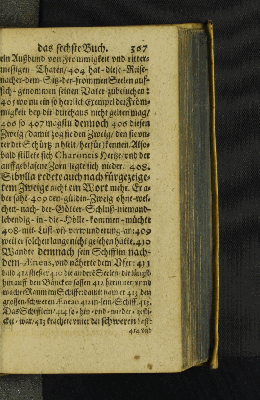 das sechste Buch. 307
ein Außbund von Frommigkeit und ritter-
messigen Thaten/ 404 hat diese Reise
nacher dem Sitz der frommen Seelen auff
sich genommen seinen Vater zubesuchen:
405 wo nu ein so herrlich Exempel der From-
migkeit bey dir durchaus nicht gelten mag/
406 so 407 magstu dennoch 406 diesen
Zweig (damit zog sie den Zweig/ den sie un-
ter der Schürtz
bald stillete sich Charontis Hertze/ und der
auffgeblasene Zorn legte sich nieder. 408.
Sibylla redete auch nach fürgezeige-
tem Zweige nicht ein Wort mehr. Er a-
ber sahe 409 den güldin Zweig ohne wel-
chen nach der Götter Schluß niemand
lebendig in die Hölle kommen möchte
408 mit Lust und verwunderung an: 409
weil er solchen lange nicht gesehen hatte. 410
Wandte demnach sein Schifflin nach
dem Æneas, und näherte dem Ufer: 411
bald 412 stiesse 410 die andere Seelen die längst
herauff den Bäncken sassen 412 herunter und
machte Raum im Schiffe: damit nam er 413 den
grossen schweren Æneas 412 in sein Schiff. 413.
Das Schifflein/ 414 so hin und wieder
war/ 413 krachete unter der schweren Last:
414 und